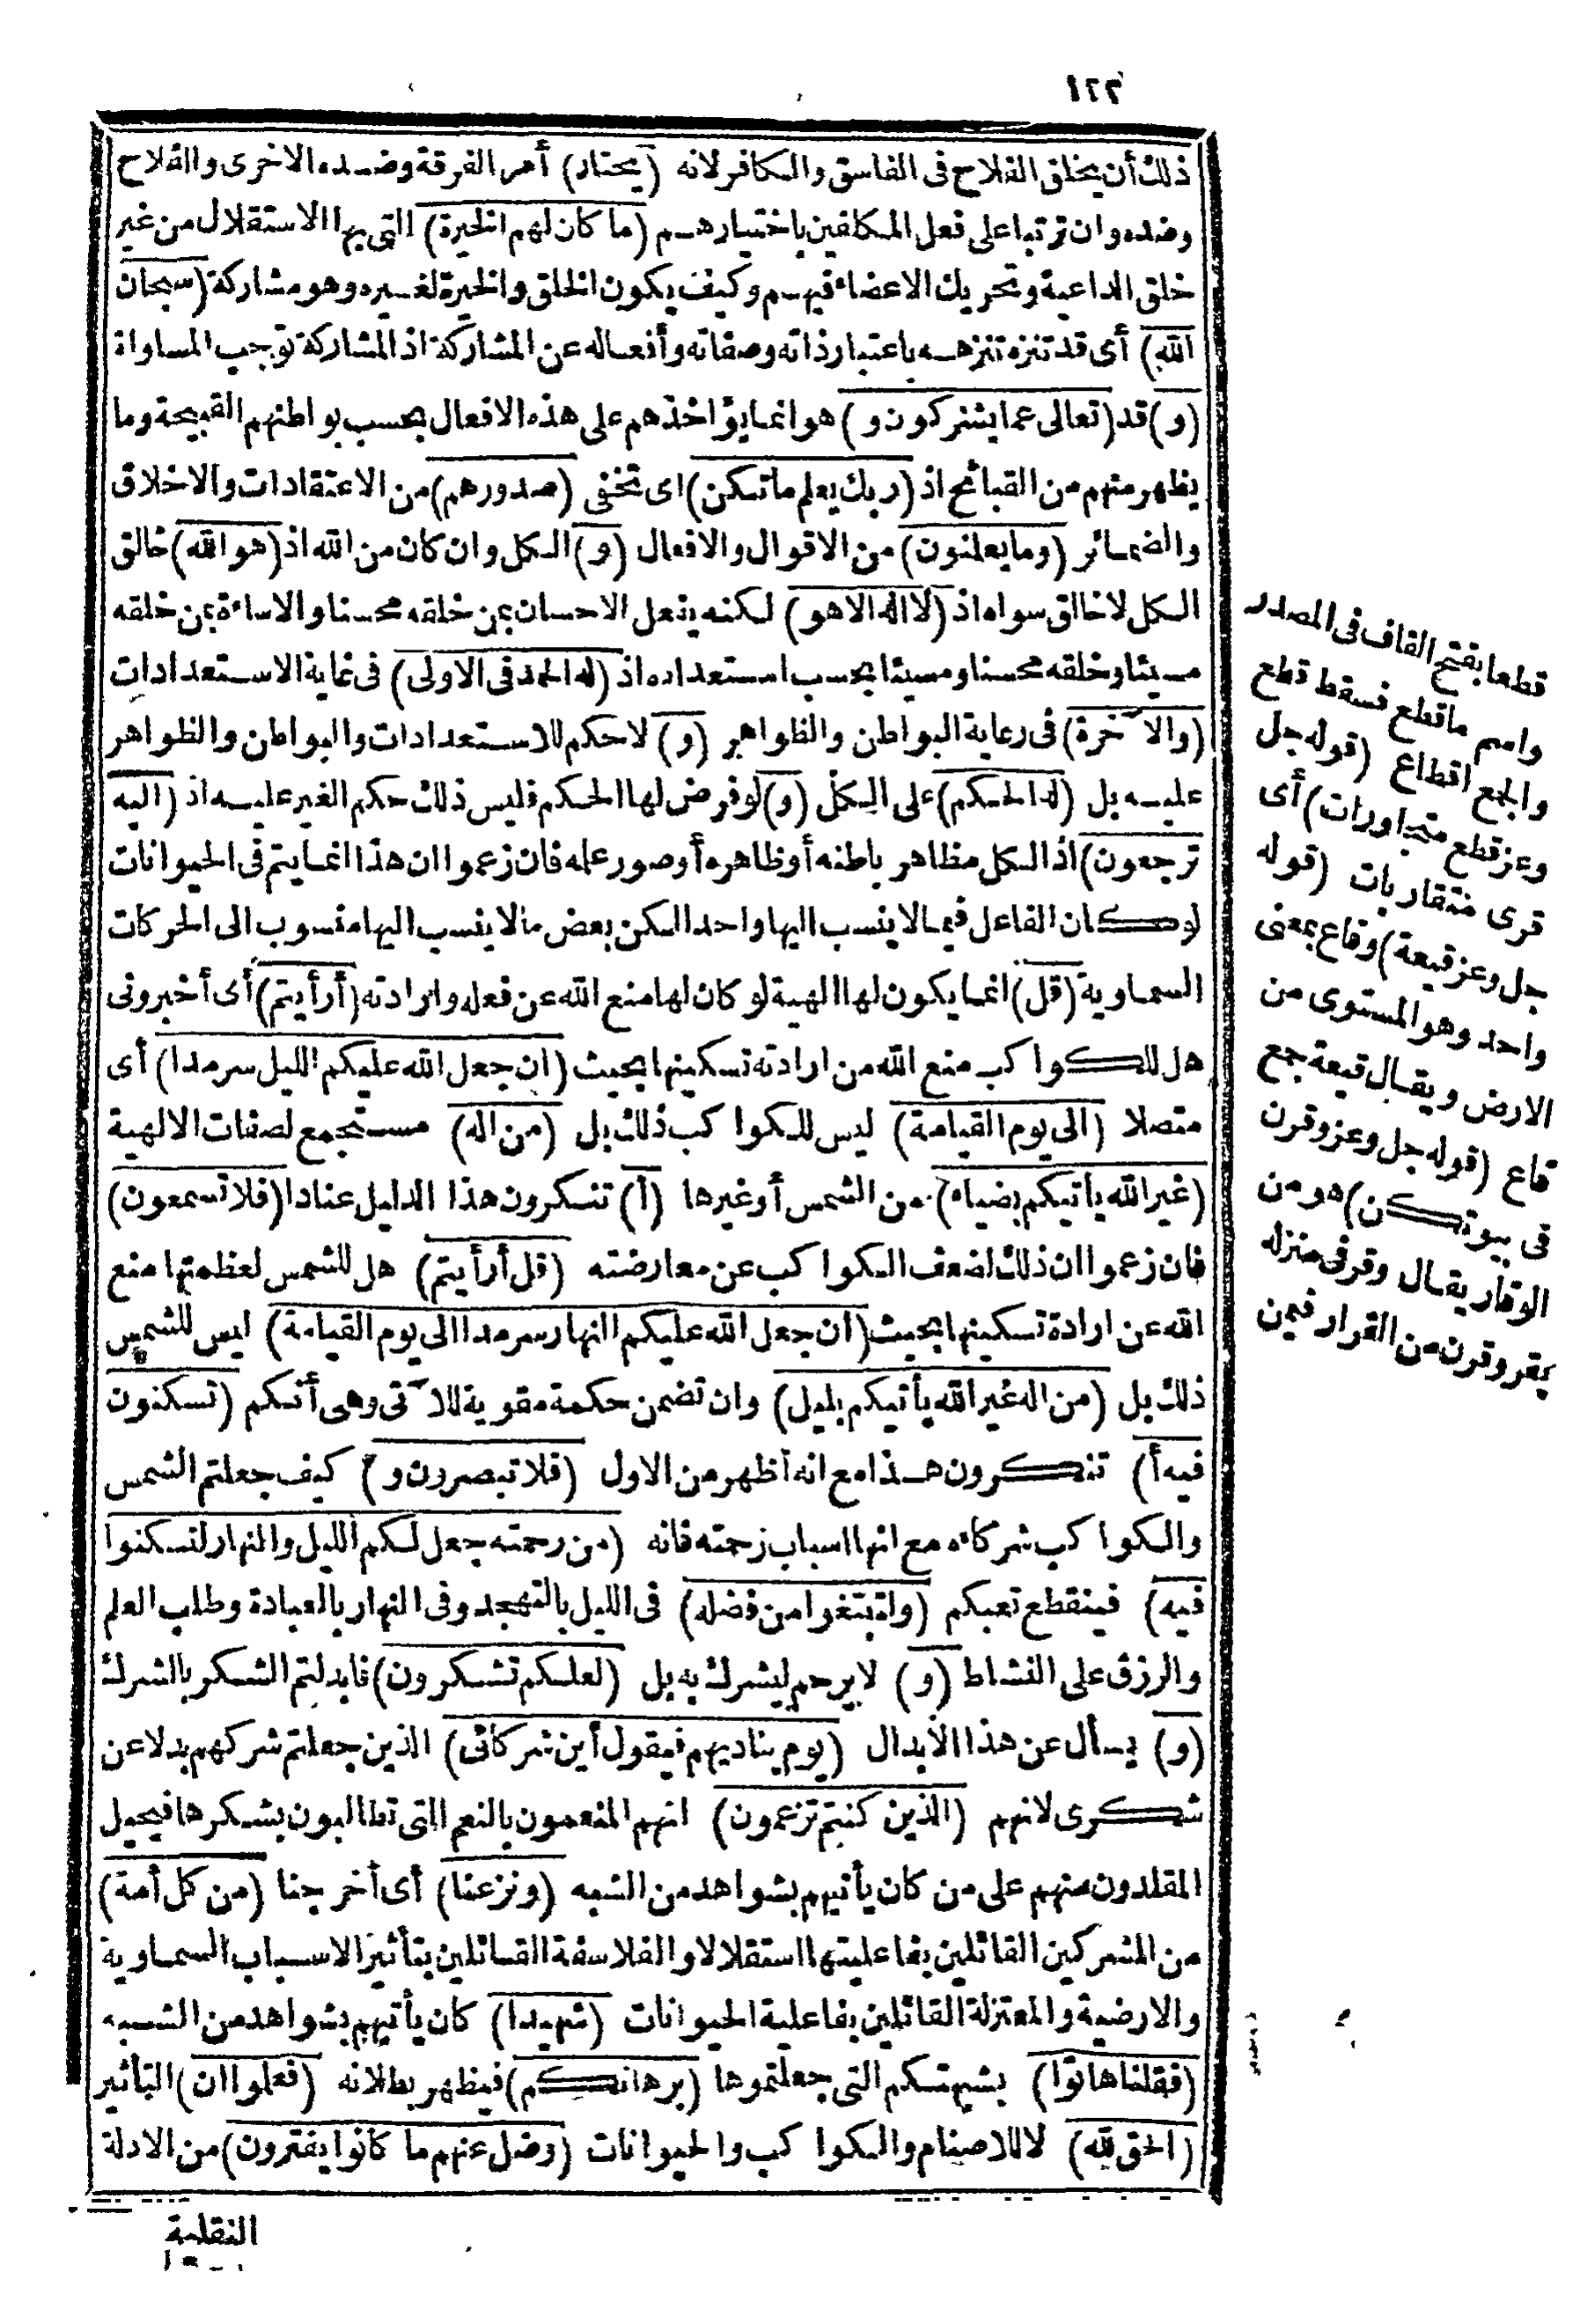 ١٢٢
ذلك أن يخلق الفلاح فى الفاسق والكافر لانه (يختار) أمر الفرقة وضده الاخرى والفلاح
وضده وان ترتبا على فعل المكلفين باختيارهم (ما كان لهم الخيرة) التى بها الاستقلال من غير
خلق الداعية وتحريك الاعضاء فيهم وكيف يكون الخلق والخيرة لغيره وهو مشاركة (سبحان
الله) أى قد تنزه تنزهه باعتبار ذاته وصفاته وأفعاله عن المشاركة اذ المشاركة توجب المساواة
(و) قد (تعالى عما يشركون و) هو انما يؤاخذهم على هذه الافعال بحسب بواطنهم القبيحة وما
يظهر منهم من القبائح اذ (ربك يعلم ما تكن) اى تخفى (صدورهم) من الاعتقادات والاخلاق
والضمائر (وما يعلنون) من الاقوال والافعال (و) الكل وان كان من الله اذ (هو الله) خالق
الكل لا خالق سواه اذ (لا اله الا هو) لكنه يفعل الاحسان بمن خلقه محسنا والاساءة بمن خلقه
مسيئا وخلقه محسنا ومسيئا بحسب استعداده اذ (له الحمد فى الاولى) فى غاية الاستعدادات
(والآخرة) فى رعاية البواطن والظواهر (و) لا حكم للاستعدادات والبواطن والظواهر
عليه بل (له الحكم) على الكل (و) لو فرض لها الحكم فليس ذلك حكم الغير عليه اذ (اليه
ترجعون) اذ الكل مظاهر باطنه أو ظاهره أو صور علمه فان زعموا ان هذا انما يتم فى الحيوانات
لو كان الفاعل فيما لا ينسب اليها واحد الكن بعض ما لا ينسب اليها منسوب الى الحركات
السماوية (قل) انما يكون لها الهية لو كان لها منع الله عن فعله وارادته (أرأيتم) أى أخبرونى
هل للكواكب منع الله من ارادته تسكينها بحيث (ان جعل الله عليكم الليل سرمدا) أى
متصلا (الى يوم القيامة) ليس للكواكب ذلك بل (من اله) مستجمع لصفات الالهية
(غير الله يأتيكم بضياء) من الشمس أو غيرها (أ) تنكرون هذا الدليل عنادا (فلا تسمعون)
فان زعموا ان ذلك لضعف الكواكب عن معارضته (قل أرأيتم) هل للشمس لعظمتها منع
الله عن ارادة تسكينها بحيث (ان جعل الله عليكم النهار سرمدا الى يوم القيامة) ليس للشمس
ذلك بل (من اله غير الله يأتيكم بليل) وان تضمن حكمة مقوية للآتى وهى أنكم (تسكنون
فيه أ) تنكرون هذا مع انه أظهر من الاول (فلا تبصرون و) كيف جعلتم الشمس
والكواكب شركاءه مع انها اسباب رحمته فانه (من رحمته جعل لكم الليل والنهار لتسكنوا
فيه) فينقطع تعبكم (ولتبتغوا من فضله) فى الليل بالتهجد وفى النهار بالعبادة وطلب العلم
والرزق على النشاط (و) لا يرحم ليشرك به بل (لعلكم تشكرون) فابدلتم الشكر بالشرك
(و) يسأل عن هذا الابدال (يوم يناديهم فيقول أين شركائى) الذين جعلتم شركهم بدلا عن
شكرى لانهم (الذين كنتم تزعمون) انهم المنعمون بالنعم التى تطالبون بشكرها فيحيل
المقلدون منهم على من كان يأتيهم بشواهد من الشبه (ونزعنا) أى أخرجنا (من كل أمة)
من المشركين القائلين بفاعليتها استقلالا والفلاسفة القائلين بتأثير الاسباب السماوية
والارضية والمعتزلة القائلين بفاعلية الحيوانات (شهيدا) كان يأتيهم بشواهد من الشبه
(فقلنا هاتوا) بشبهتكم التى جعلتموها (برهانكم) فيظهر بطلانه (فعلموا ان) التأثير
(الحق لله) لا للاصنام والكواكب والحيوانات (وضل عنهم ما كانوا يفترون) من الادلة
النقلية
قطعا بفتح القاف فى المصدر
واسم ما قطع فسقط قطع
والجمع اقطاع (قوله جل
وعز قطع متجاورات) أى
قرى متقاربات (قوله
جل وعز قيعة) وقاع بمعنى
واحد وهو المستوى من
الارض ويقال قيعة جمع
قاع (قوله جل وعز وقرن
فى بيوتكن) هو من
الوقار يقال وقر فى منزله
يقر وقرن من القرار فيمن